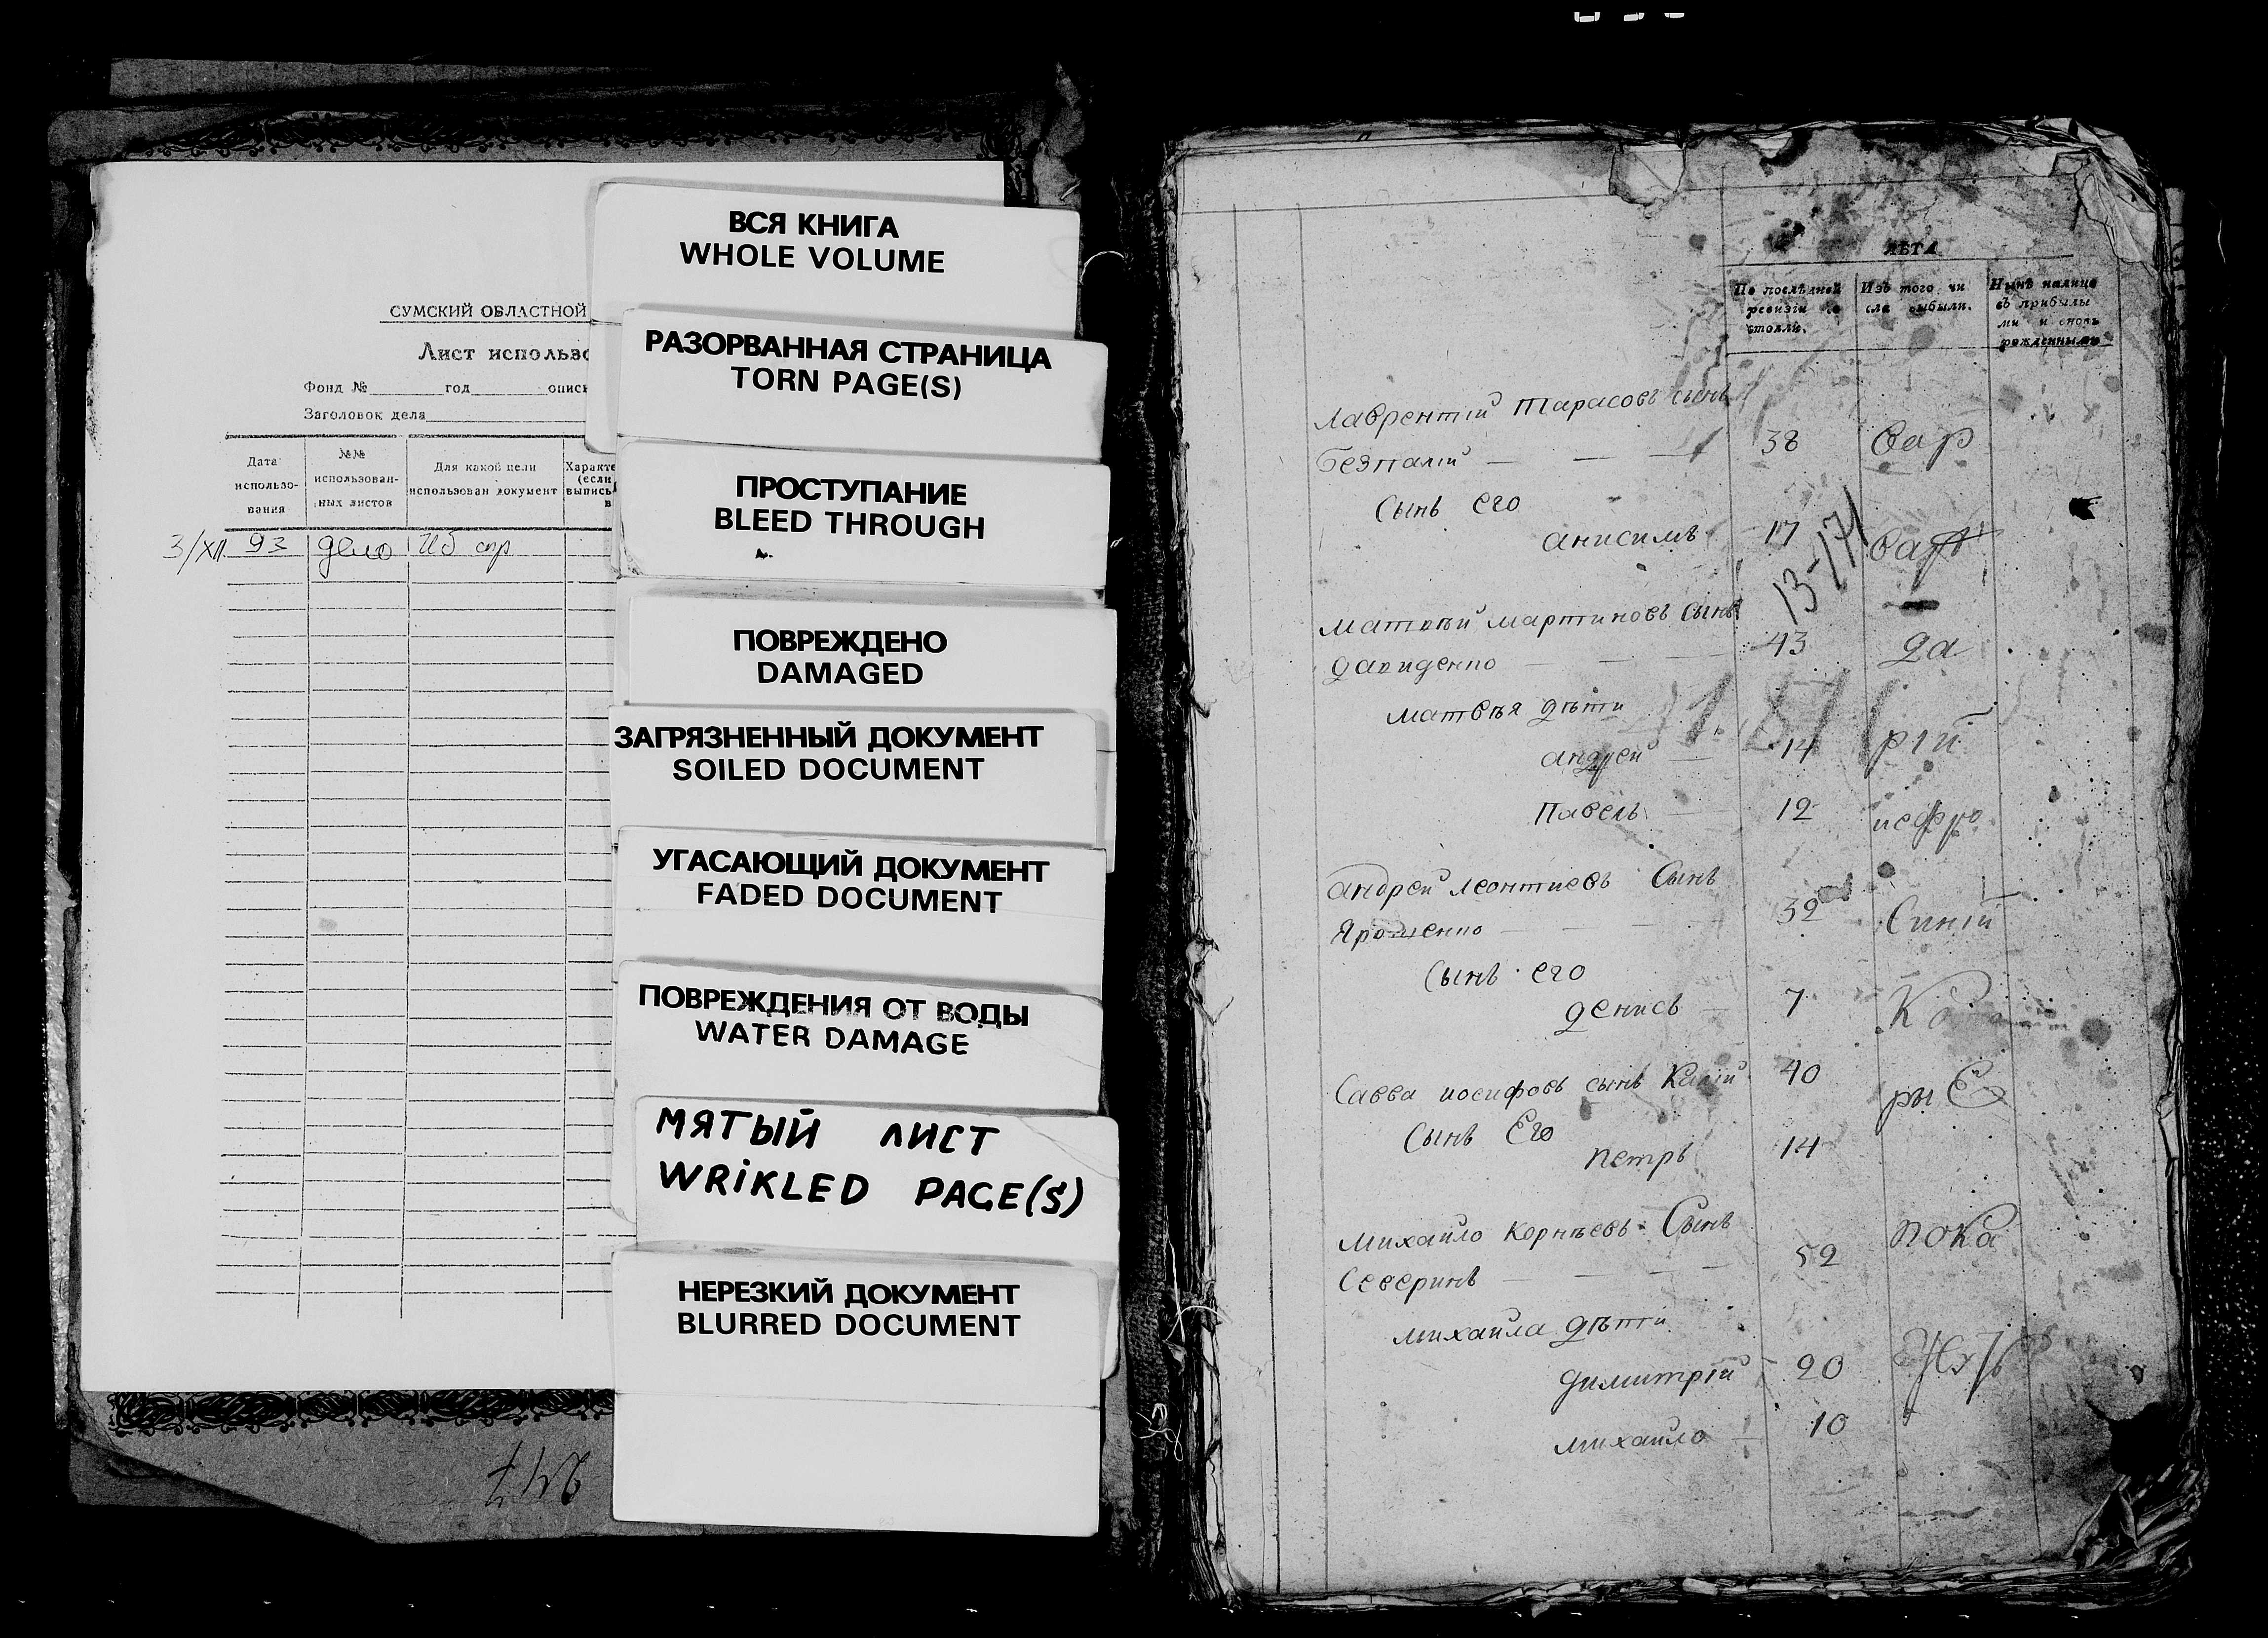 СУМСКИЙ ОБЛАСТНОЙ
Лист использо
Фонд № год опись
Заголовок дела
Дата использо-вания
№№ использован-ных листов
Для какой цели использован документ
Характе (если выпись в
3/XII 93 дело
ВСЯ КНИГА
WHOLE VOLUME
РАЗОРВАННАЯ СТРАНИЦА
TORN PAGE(S)
ПРОСТУПАНИЕ
BLEED THROUGH
ПОВРЕЖДЕНО
DAMAGED
ЗАГРЯЗНЕННЫЙ ДОКУМЕНТ
SOILED DOCUMENT
УГАСАЮЩИЙ ДОКУМЕНТ
FADED DOCUMENT
ПОВРЕЖДЕНИЯ ОТ ВОДЫ
WATER DAMAGE
МЯТЫЙ ЛИСТ
WRIKLED PAGE(S)
НЕРЕЗКИЙ ДОКУМЕНТ
BLURRED DOCUMENT
ЛѢТА
По послѣдней ревизіи состояли.
Изъ того числа выбыли.
Нынѣ налице съ прибылыми и вновь рожденными
Лаврентій Тарасовъ сынъ
Безпалій 38
Сынъ его
анисимъ 17
13-171
Матвѣй Мартиновъ Сынъ
Давиденко 43 да
Матвѣя дѣти
андрей 14 рій
Павелъ 12
андрей леонтиевъ Сынъ
Ярошенко 32 Синій
Сынъ его
денисъ 7
Савва иосифовъ сынъ 40
Сынъ Его
Петръ 14
Михайло Корнѣевъ Сынъ
Северинъ 52 пока
Михайла дѣти
Димитрій 20
михайло 10